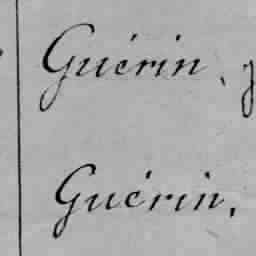 Guérin,
Guérin,